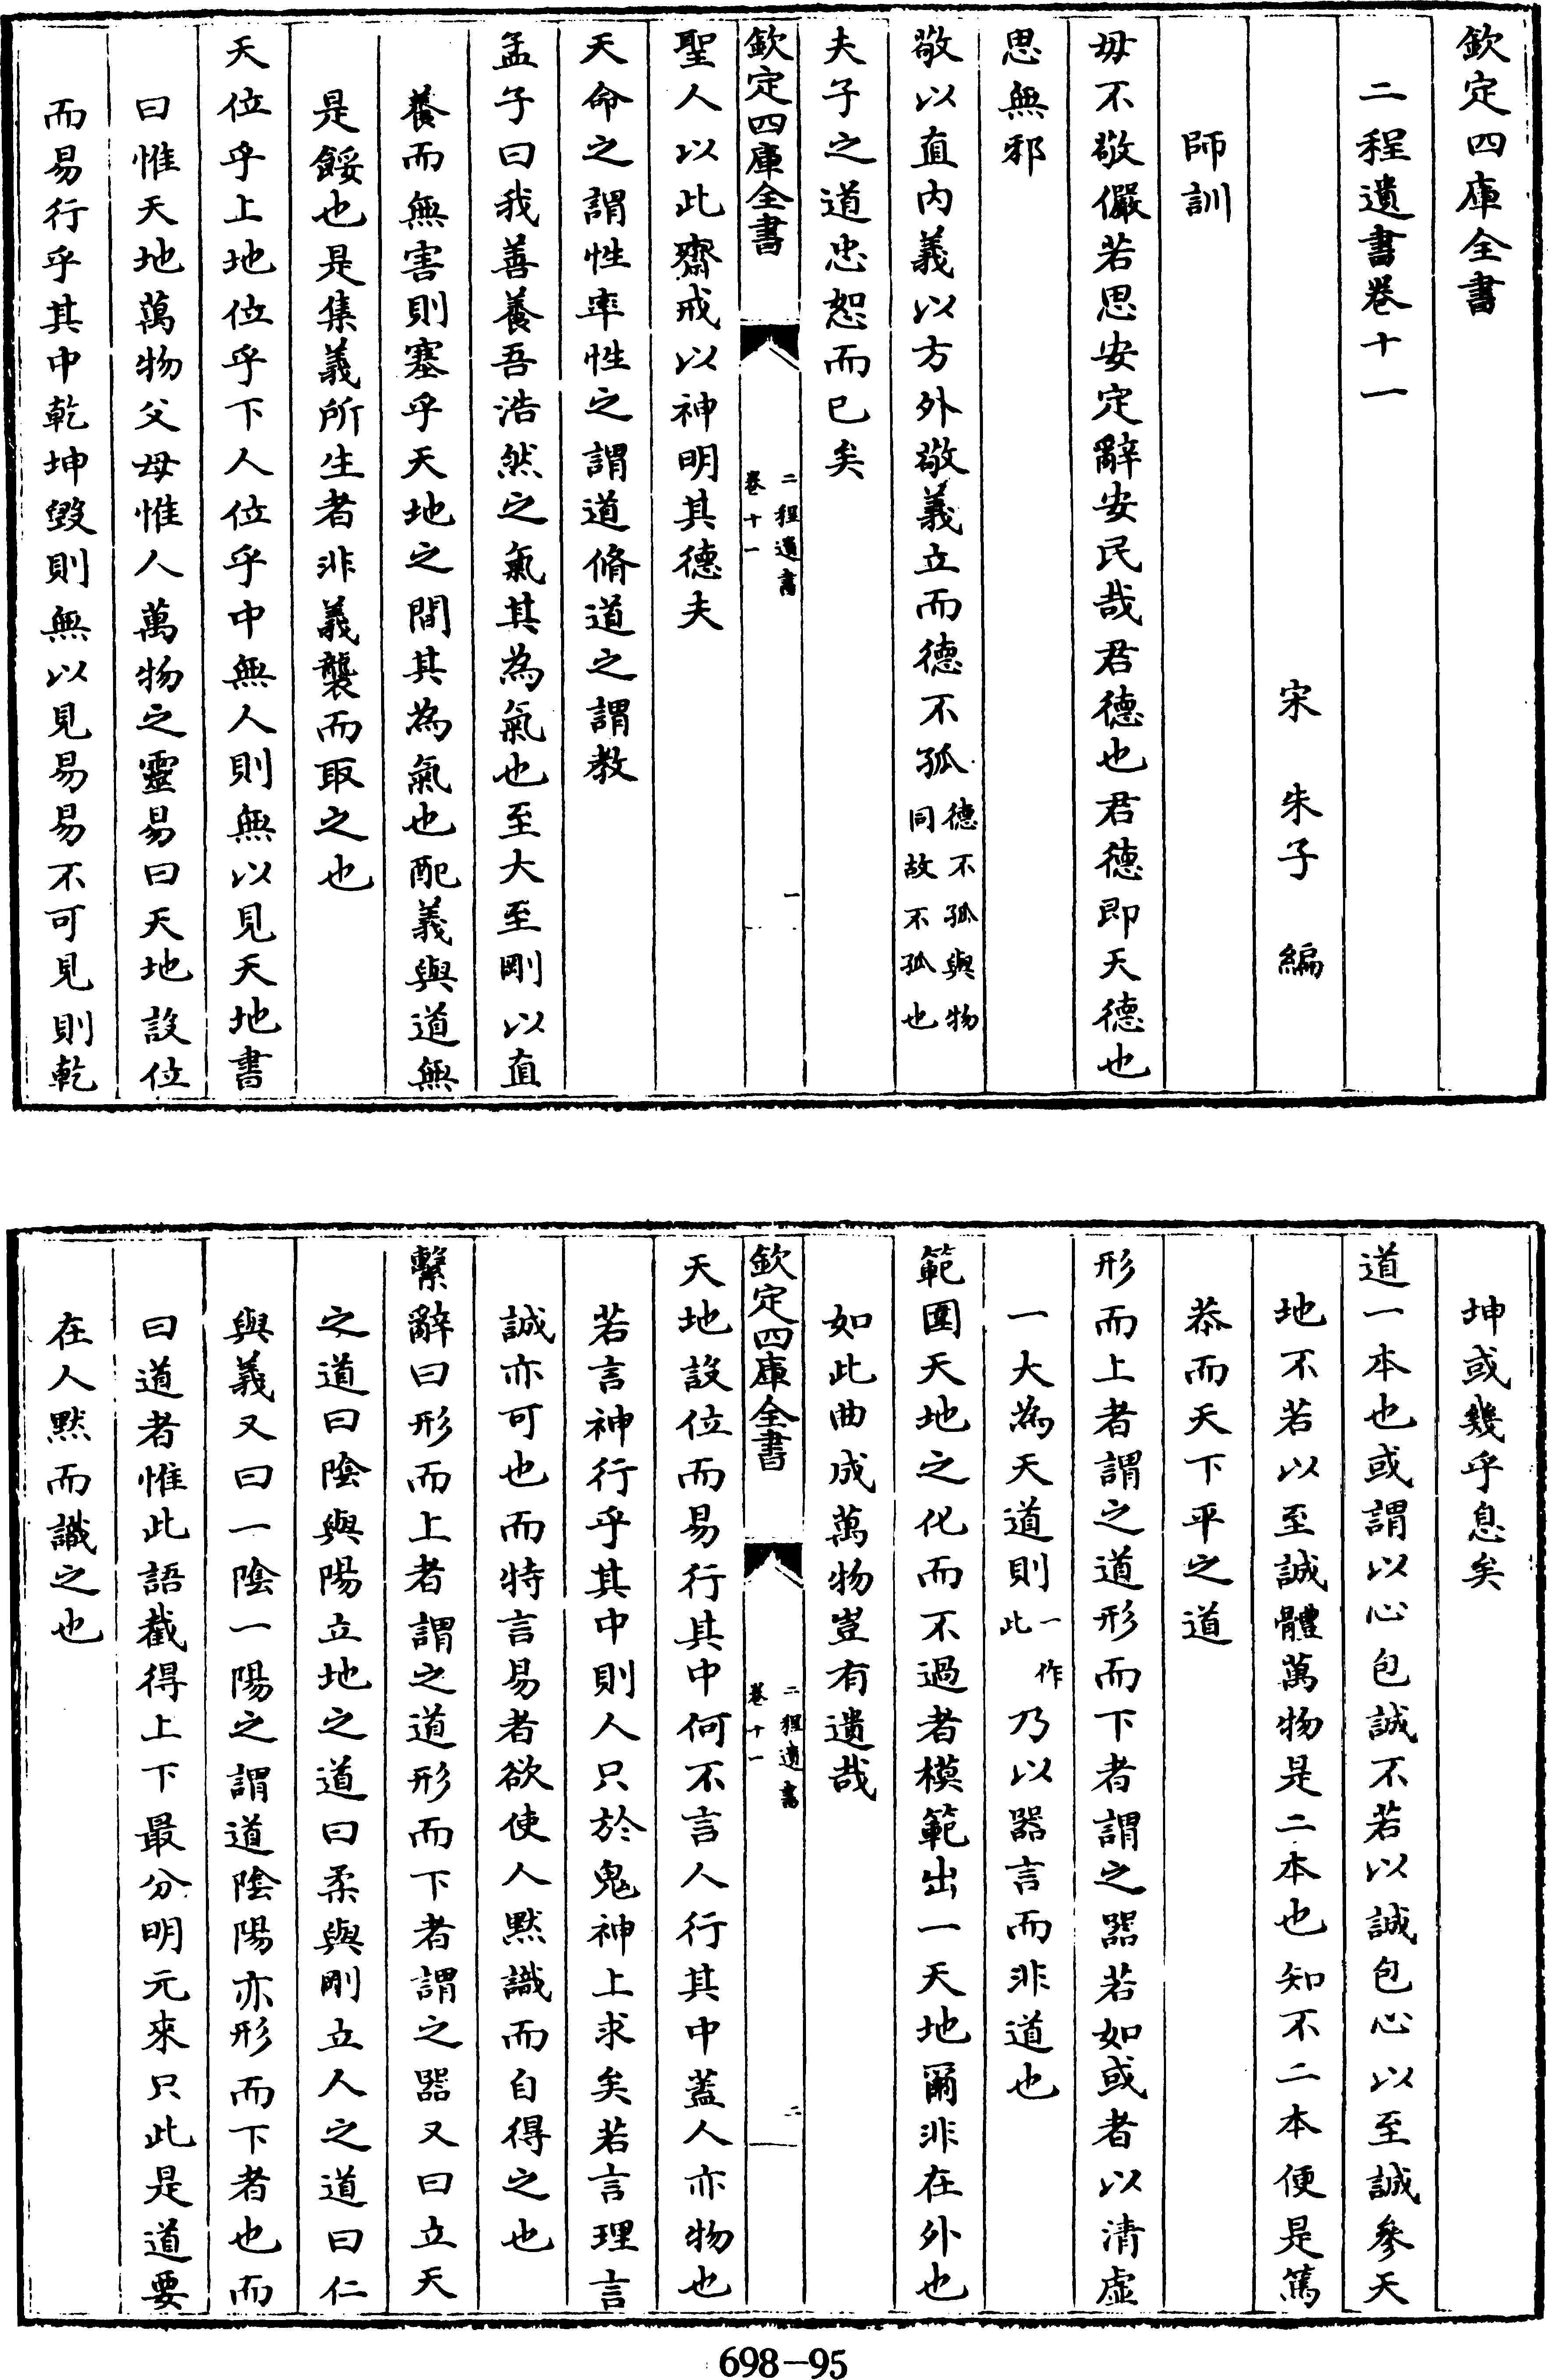 欽定四庫全書
二程遺書卷十一
宋　朱子　編
師訓
毋不敬儼若思安定辭安民哉君德也君德即天德也
思無邪
敬以直内義以方外敬義立而德不孤德不孤與物同故不孤也
夫子之道忠恕而已矣
欽定四庫全書
二程遺書
卷十一
一
聖人以此齋戒以神明其德夫
天命之謂性率性之謂道脩道之謂教
孟子曰我善養吾浩然之氣其為氣也至大至剛以直
養而無害則塞乎天地之間其為氣也配義與道無
是餒也是集義所生者非義襲而取之也
天位乎上地位乎下人位乎中無人則無以見天地書
曰惟天地萬物父母惟人萬物之靈易曰天地設位
而易行乎其中乾坤毀則無以見易易不可見則乾
坤或幾乎息矣
道一本也或謂以心包誠不若以誠包心以至誠參天
地不若以至誠體萬物是二本也知不二本便是篤
恭而天下平之道
形而上者謂之道形而下者謂之器若如或者以清虛
一大為天道則一作此乃以器言而非道也
範圍天地之化而不過者模範出一天地爾非在外也
如此曲成萬物豈有遺哉
欽定四庫全書
二程遺書
卷十一
二
天地設位而易行其中何不言人行其中蓋人亦物也
若言神行乎其中則人只於鬼神上求矣若言理言
誠亦可也而特言易者欲使人默識而自得之也
繫辭曰形而上者謂之道形而下者謂之器又曰立天
之道曰陰與陽立地之道曰柔與剛立人之道曰仁
與義又曰一陰一陽之謂道陰陽亦形而下者也而
曰道者惟此語截得上下最分明元來只此是道要
在人默而識之也
698-95